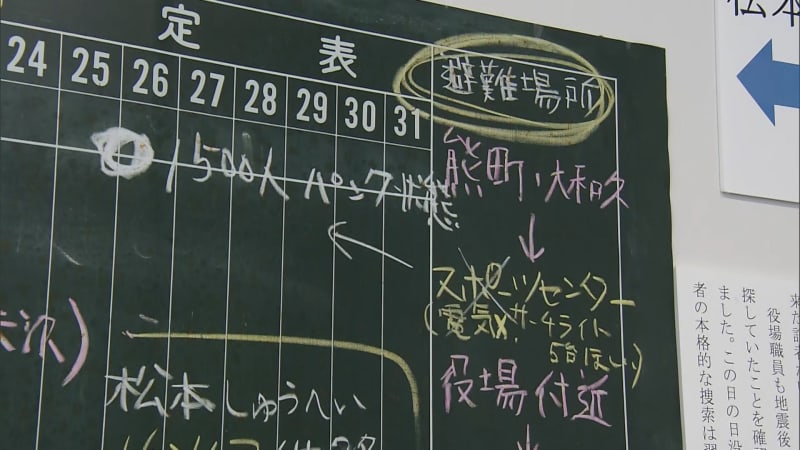 定 表
24 25 26 27 28 29 30 31
1500人 パンク状態
避難場所
熊町・大和久
↓
スポーツセンター
(電気×、サーチライト
5台ほしい)
役場付近
松本しゅうへい
松本
役場職員も地震後
探していたことを確認
ました。この日の日没
者の本格的な捜索は翌